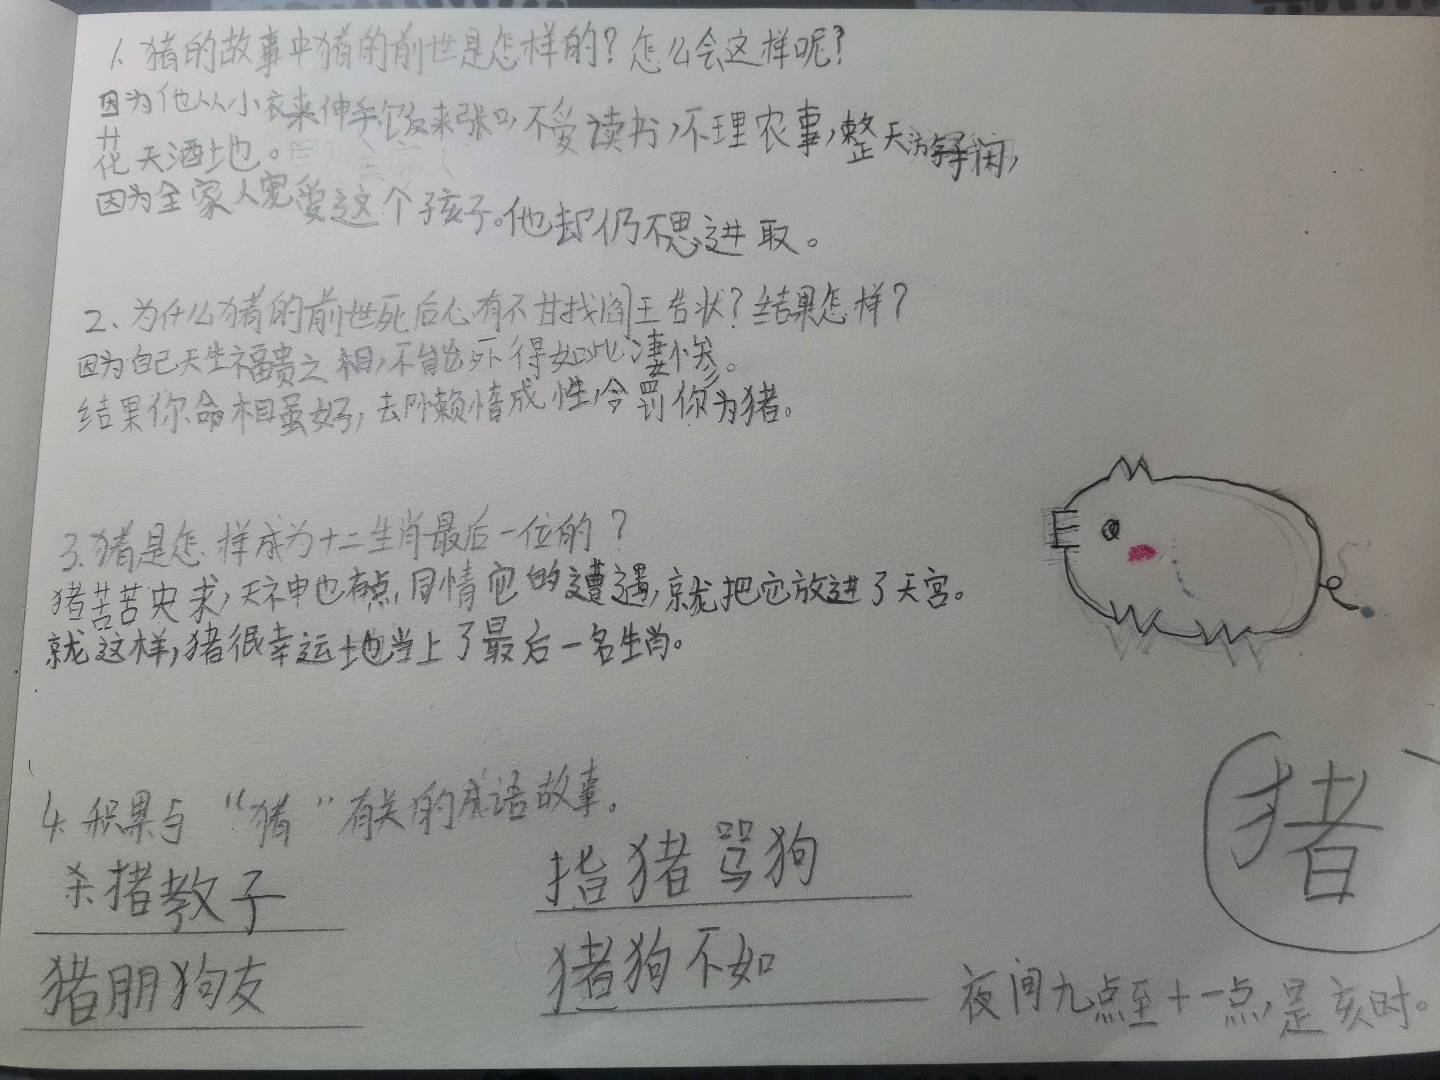 1、猪的故事中猪的前世是怎样的？怎么会这样呢？
因为他从小衣来伸手，饭来张口，不爱读书，不理农事，整天游手好闲，
花天酒地。
因为全家人宠爱这个孩子。他却仍不思进取。
2、为什么猪的前世死后心有不甘找阎王告状？结果怎样？
因为自己天生福贵之相，不能死得如此凄惨。
结果你命相虽好，却懒惰成性，令罚你为猪。
3、猪是怎样成为十二生肖最后一位的？
猪苦苦央求，天神也有点同情它的遭遇，就把它放进了天宫。
就这样，猪很幸运地当上了最后一名生肖。
4、积累与“猪”有关的成语故事。
杀猪教子
指猪骂狗
猪朋狗友
猪狗不如
猪
夜间九点至十一点，是亥时。